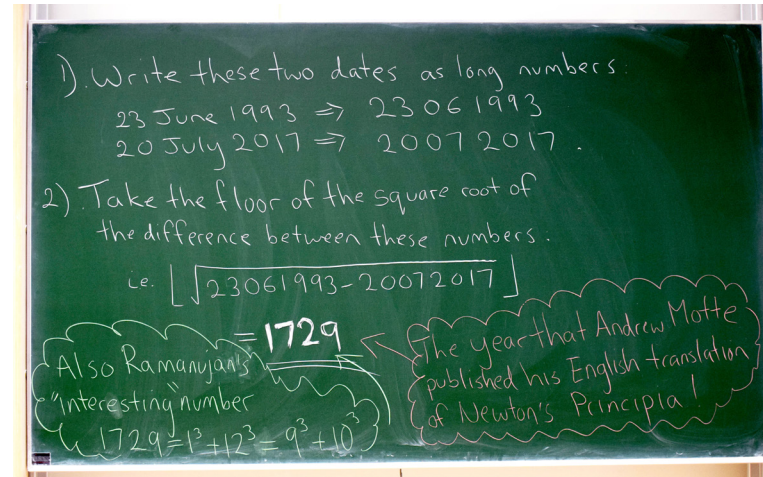 1). Write these two dates as long numbers:
23 June 1993 ⇒ 23061993
20 July 2017 ⇒ 20072017.
2). Take the floor of the square root of
the difference between these numbers.
i.e. ⌊√23061993-20072017⌋
= 1729
Also Ramanujan's
"interesting" number
1729 = 1³ + 12³ = 9³ + 10³
The year that Andrew Motte
published his English translation
of Newton's Principia!